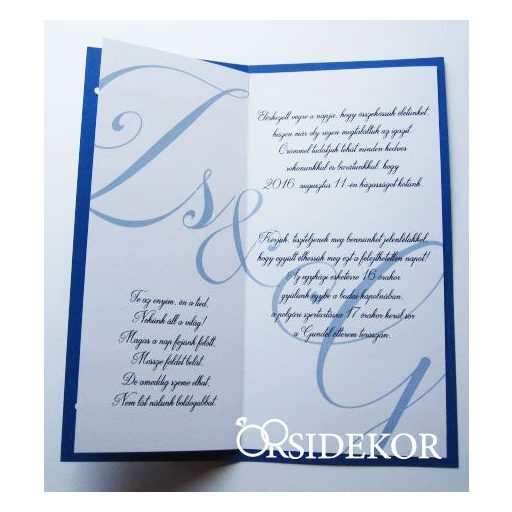 Zs
&
G
Te az enyém, én a tied,
Nekünk áll a világ!
Magas a nap fejünk fölött,
Messze földet belát.
De ameddig szeme elhat,
Nem lát nálunk boldogabbat.
Elérkezett végre a napja, hogy összekössük életünket,
hiszen már oly régen megtaláltuk az igazit.
Örömmel tudatjuk tehát minden kedves
rokonunkkal és barátunkkal, hogy
2016. augusztus 11-én házasságot kötünk.
Kérjük, tiszteljenek meg bennünket jelenlétükkel,
hogy együtt élhessük meg ezt a felejthetetlen napot!
Az egyházi esketésre 16 órakor
gyűlünk egybe a budai kápolnában,
a polgári szertartásra 17 órakor kerül sor
a Gundel étterem teraszán.
ORSIDEKOR